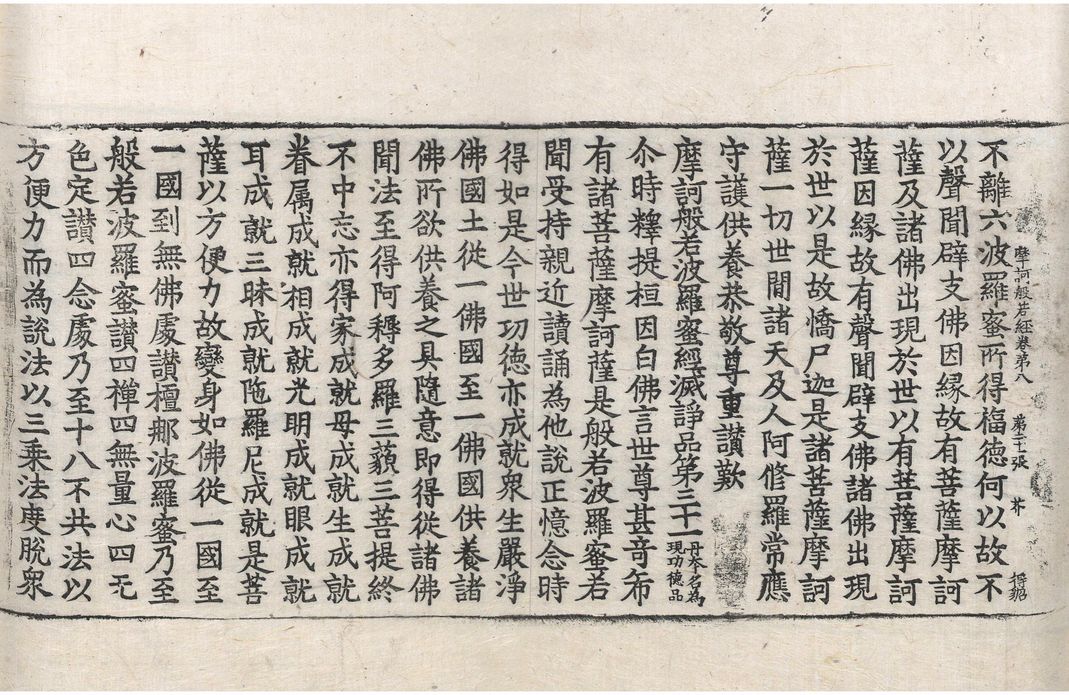 摩訶般若経卷第八　第二十張　芥
不離六波羅蜜所得福德何以故不
以聲聞辟支佛因緣故有菩薩摩訶
薩及諸佛出現於世以有菩薩摩訶
薩因緣故有聲聞辟支佛諸佛出現
於世以是故憍尸迦是諸菩薩摩訶
薩一切世間諸天及人阿修羅常應
守護供養恭敬尊重讃歎
摩訶般若波羅蜜經滅諍品第三十一丹本名為現功德品
尒時釋提桓因白佛言世尊甚奇希
有諸菩薩摩訶薩是般若波羅蜜若
聞受持親近讀誦為他說正憶念時
得如是今世功德亦成就衆生嚴淨
佛國土從一佛國至一佛國供養諸
佛所欲供養之具隨意即得從諸佛
聞法至得阿耨多羅三藐三菩提終
不中忘亦得家成就母成就生成就
眷属成就相成就光明成就眼成就
耳成就三昧成就陁羅尼成就是菩
薩以方便力故變身如佛從一國至
一國到無佛處讃檀那波羅蜜乃至
般若波羅蜜讃四禪四無量心四无
色定讃四念處乃至十八不共法以
方便力而為說法以三乘法度脫衆